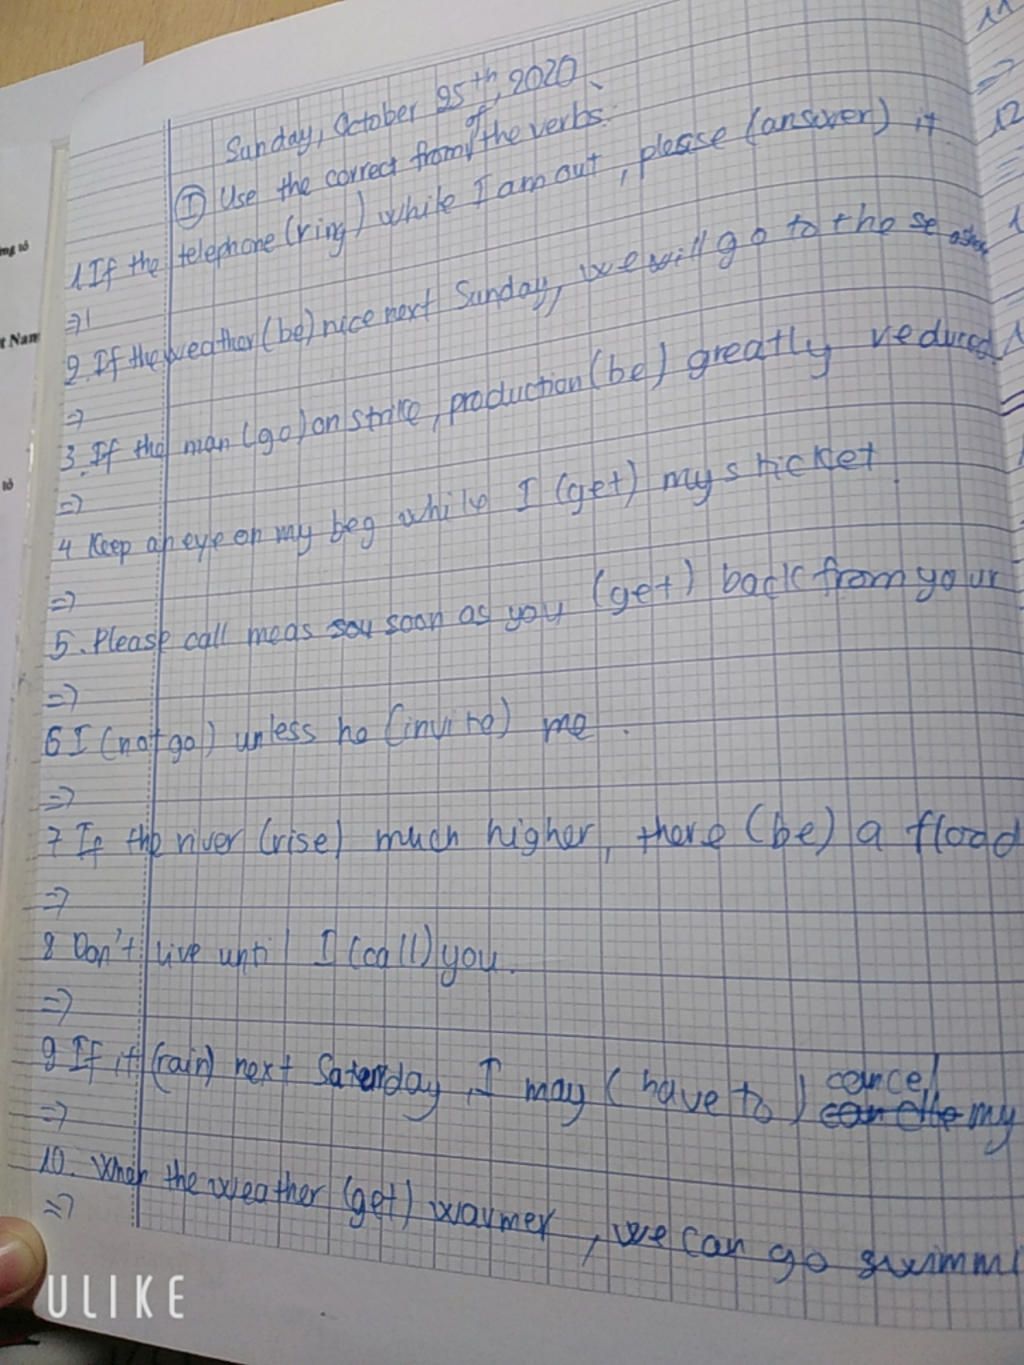 Sunday, October 25th, 2020
I Use the correct from of the verbs.
1. If the telephone (ring) while I am out, please (answer) it
=>
2. If the weather (be) nice next Sunday, we will go to the
=>
3. If the man (go) on strike, production (be) greatly reduced
=>
4 Keep an eye on my beg while I (get) my sticket
=>
5. Please call me as soon as you (get) back from your
=>
6 I (not go) unless he (invite) me.
=>
7 If the river (rise) much higher, there (be) a flood
=>
8 Don't live until I (call) you.
=>
9 If it (rain) next Saterday, I may (have to) cancel my
=>
10. When the weather (get) warmer, we can go swimmi
=>
ng tỏ
t Nam
tỏ
11
12
ULIKE